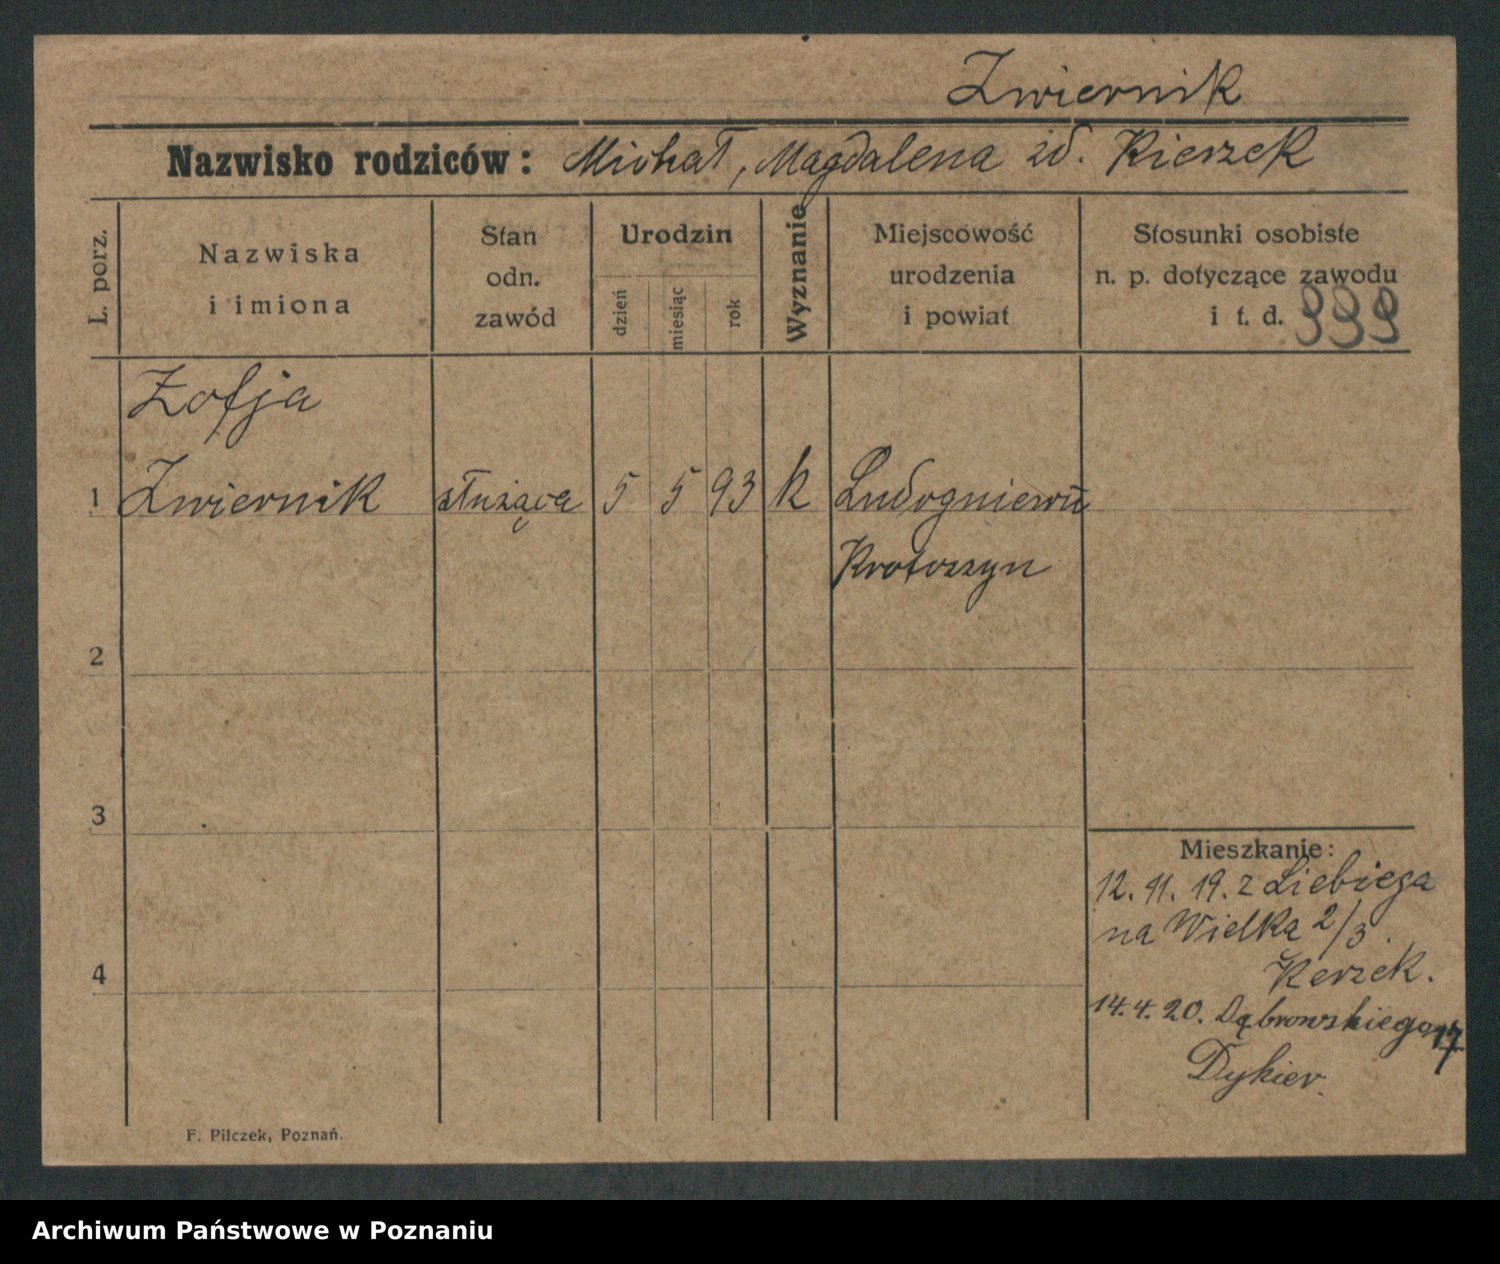 Zwiernik
Nazwisko rodziców: Michał, Magdalena zd. Kierzek
L. porz.
Nazwiska
i imiona
Stan
odn.
zawód
Urodzin
dzień
miesiąc
rok
Wyznanie
Miejscowość
urodzenia
i powiat
Stosunki osobiste
n. p. dotyczące zawodu
i t. d. 999
Zofja
1 Zwiernik służąca 5 5 93 k Ludogniewo
Krotoszyn
2
3
4
Mieszkanie:
12. 11. 19. z Liebiega
na Wielka 2/3.
Kerzek.
14. 4. 20. Dąbrowskiego 17
Dykier.
F. Pilczek, Poznań.
Archiwum Państwowe w Poznaniu